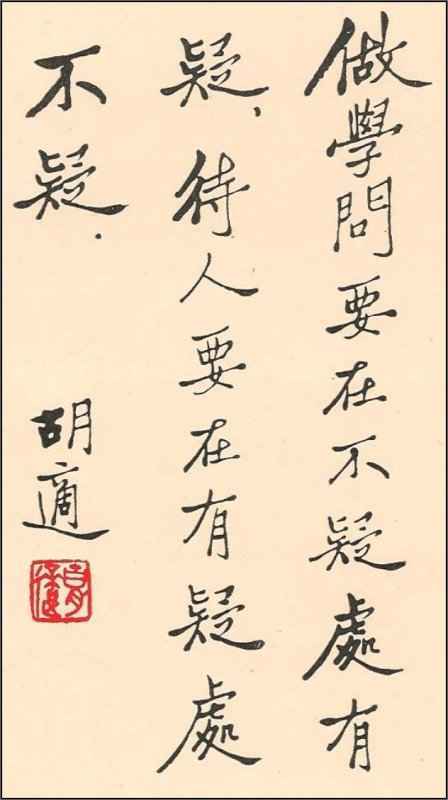 做學問要在不疑處有
疑，待人要在有疑處
不疑．
胡適
胡適